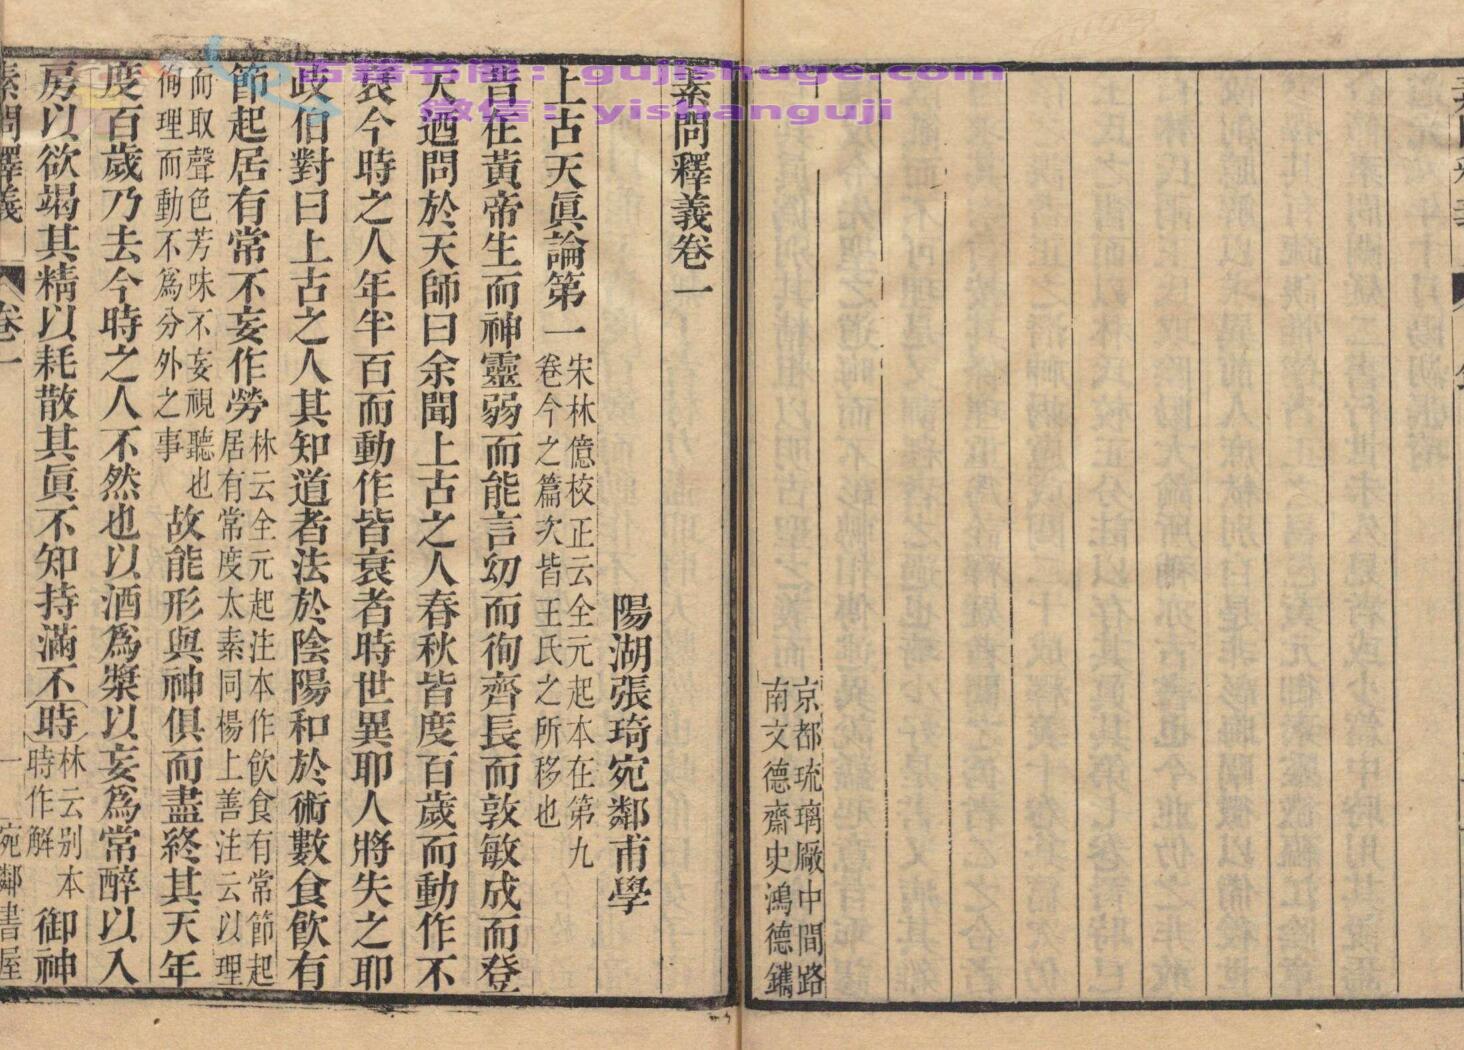 京都琉璃厰中間路
南文德齋史鴻德鐫
素問釋義卷一
陽湖張琦宛鄰甫學
上古天眞論第一
宋林億校正云全元起本在第九
卷今之篇次皆王氏之所移也
昔在黃帝生而神靈弱而能言幼而徇齊長而敦敏成而登
天迺問於天師曰余聞上古之人春秋皆度百歲而動作不
衰今時之人年半百而動作皆衰者時世異耶人將失之耶
歧伯對曰上古之人其知道者法於陰陽和於術數食飮有
節起居有常不妄作勞
林云全元起注本作飮食有常節起
居有常度太素同楊上善注云以理
而取聲色芳味不妄視聽也
徇理而動不爲分外之事
故能形與神俱而盡終其天年
度百歲乃去今時之人不然也以酒爲漿以妄爲常醉以入
房以欲竭其精以耗散其眞不知持滿不(時)
林云别本
時作解
御神
素問釋義
卷一
一
宛鄰書屋
古籍书阁：gujishuge.com
微信：yishanguji